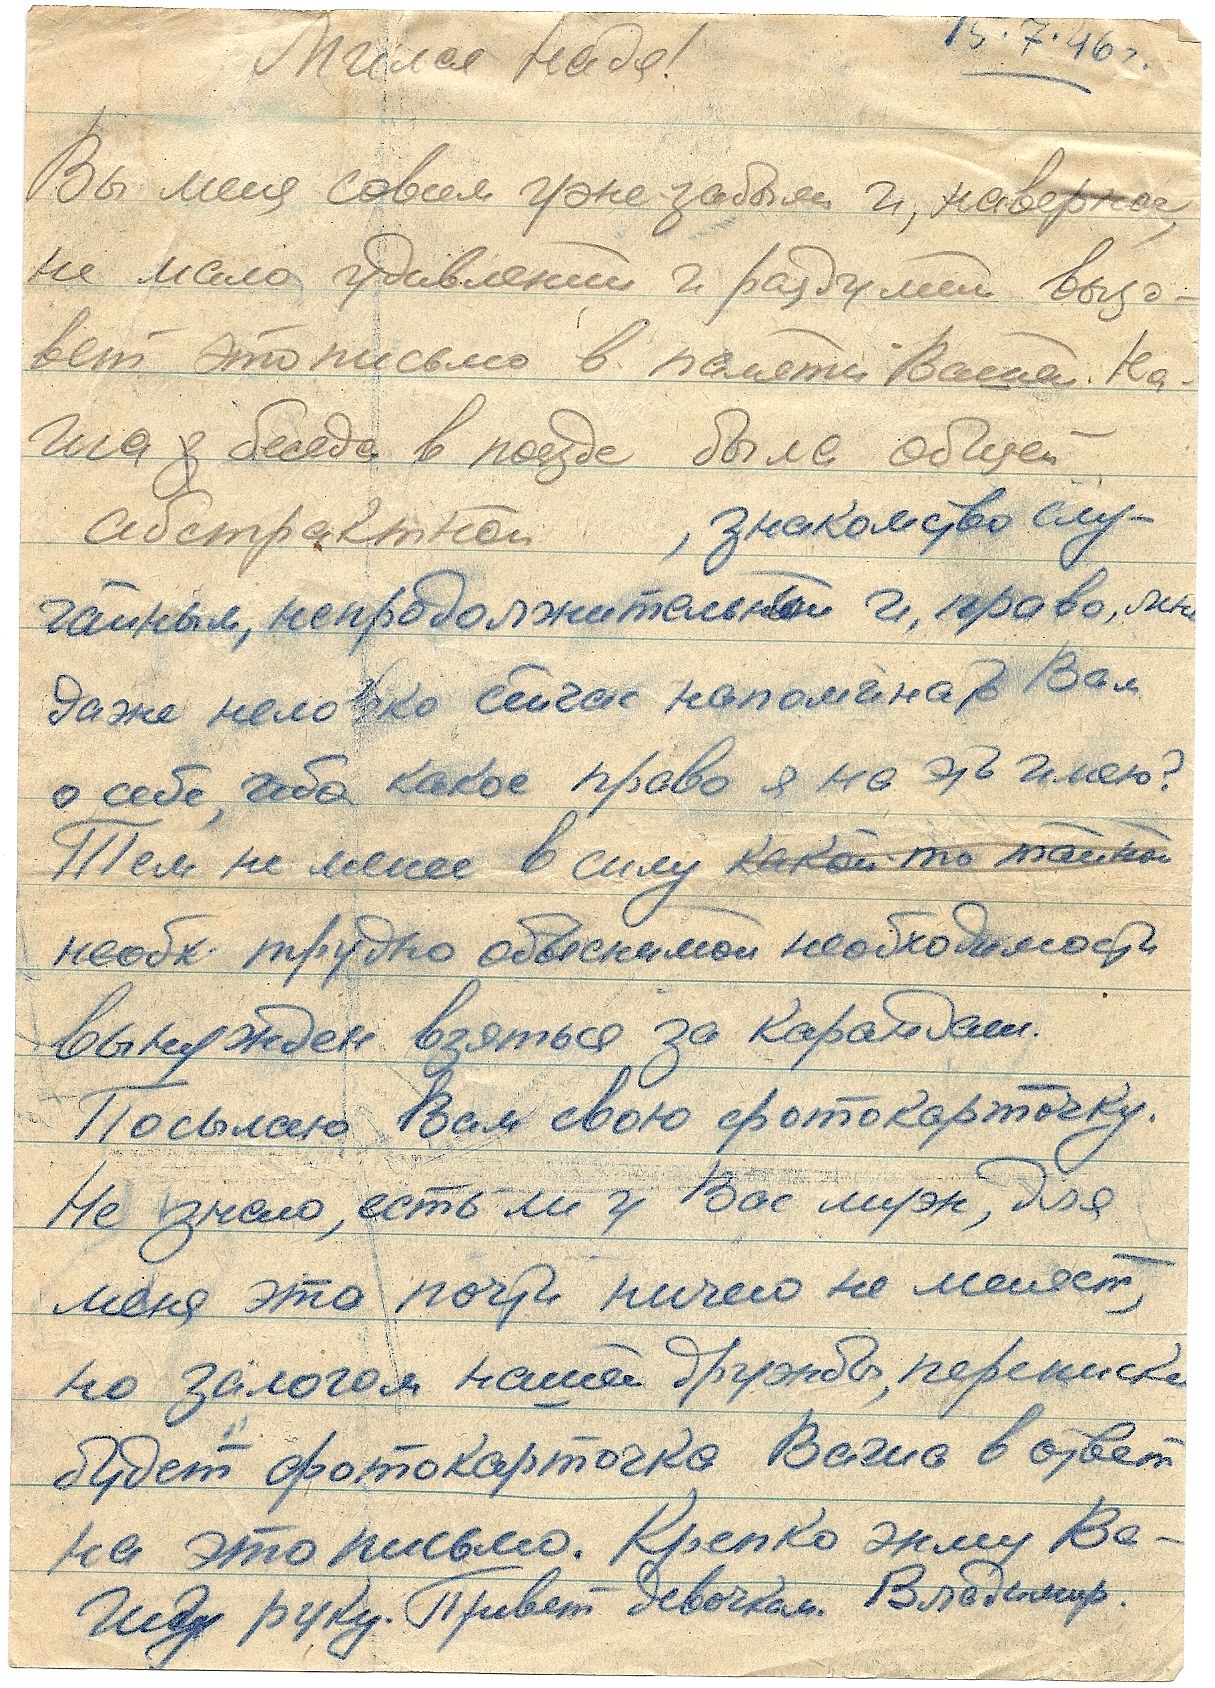 15.7.46 г.
Милая Надя!
Вы меня совсем уже забыли и, наверное,
не мало удивлений и раздумий вызо-
вет это письмо в памяти Вашей. На-
ша беседа в поезде была общей
абстрактной , знакомство слу-
чайным, непродолжительным и, право, мне
даже неловко сейчас напоминать Вам
о себе, ибо какое право я на это имею?
Тем не менее в силу какой-то тайной
необх. трудно объяснимой необходимости
вынужден взяться за карандаш.
Посылаю Вам свою фотокарточку.
Не знаю, есть ли у Вас муж, для
меня это почти ничего не меняет,
но залогом нашей дружбы, переписки
будет фотокарточка Ваша в ответ
на это письмо. Крепко жму Ва-
шу руку. Привет девочкам. Владимир.